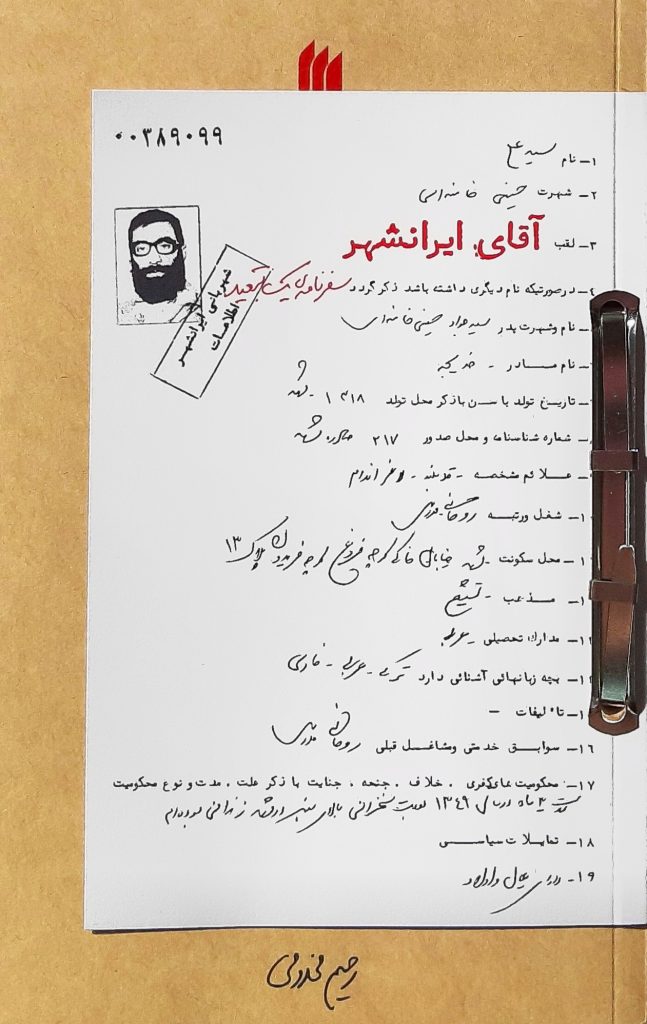 ۰۰۳۸۹۰۹۹
۱- نام سید علی
۲- شهرت حسینی خامنه‌ای
۳- لقب آقای ایرانشهر
درصورتیکه نام دیگری داشته باشد ذکر گردد سفرنامه‌ی یک تبعید
شهربانی ایرانشهر
اطلاعات
نام وشهرت پدر سید جواد حسینی خامنه‌ای
نام مادر - خدیجه
تاریخ تولد با سن باذکر محل تولد ۱۳۱۸ - مشهد
شماره شناسنامه و محل صدور ۲۱۷ صادره مشهد
علائم مشخصه - قد بلند - لاغر اندام
شغل ورتبه روحانی
محل سکونت - مشهد خیابان خاکی کوچه فروغ کوچه فریدون پلاک ۱۳
مذهب - تشیع
مدارک تحصیلی -
بچه زبانهائی آشنائی دارد ترکی - عربی - فارسی
تاء لیفات -
۱۶- سوابق خدمتی ومشاغل قبلی روحانی
۱۷- محکومیت های کیفری ، خلاف ، جنحه ، جنایت با ذکر علت ، مدت و نوع محکومیت
مدت ماه در سال ۱۳۴۹ بعلت سخنرانی بالای منبر در مشهد زندانی بوده‌ام
۱۸- تمایلات سیاسی
۱۹- دارای عیال و اولاد
رحیم مخدومی